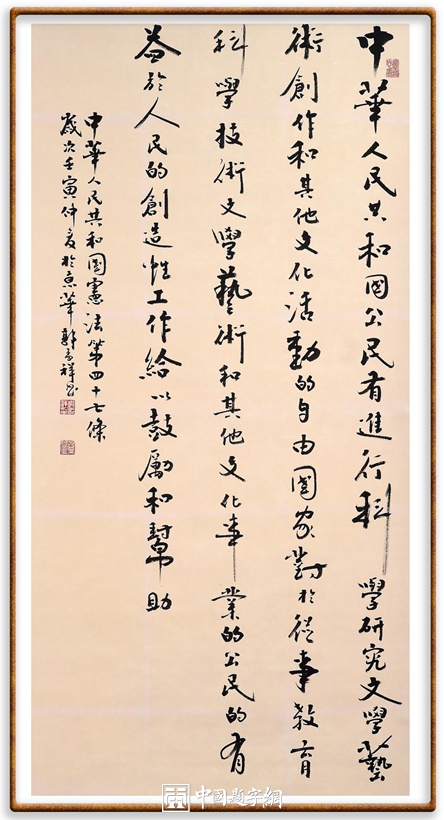 中華人民共和國公民有進行科學研究文學藝
術創作和其他文化活動的自由國家對於從事教育
科學技術文學藝術和其他文化事業的公民的有
益於人民的創造性工作給以鼓勵和幫助
中華人民共和國憲法第四十七條
歲次壬寅仲夏於京華郭豫祥書
中國題字網